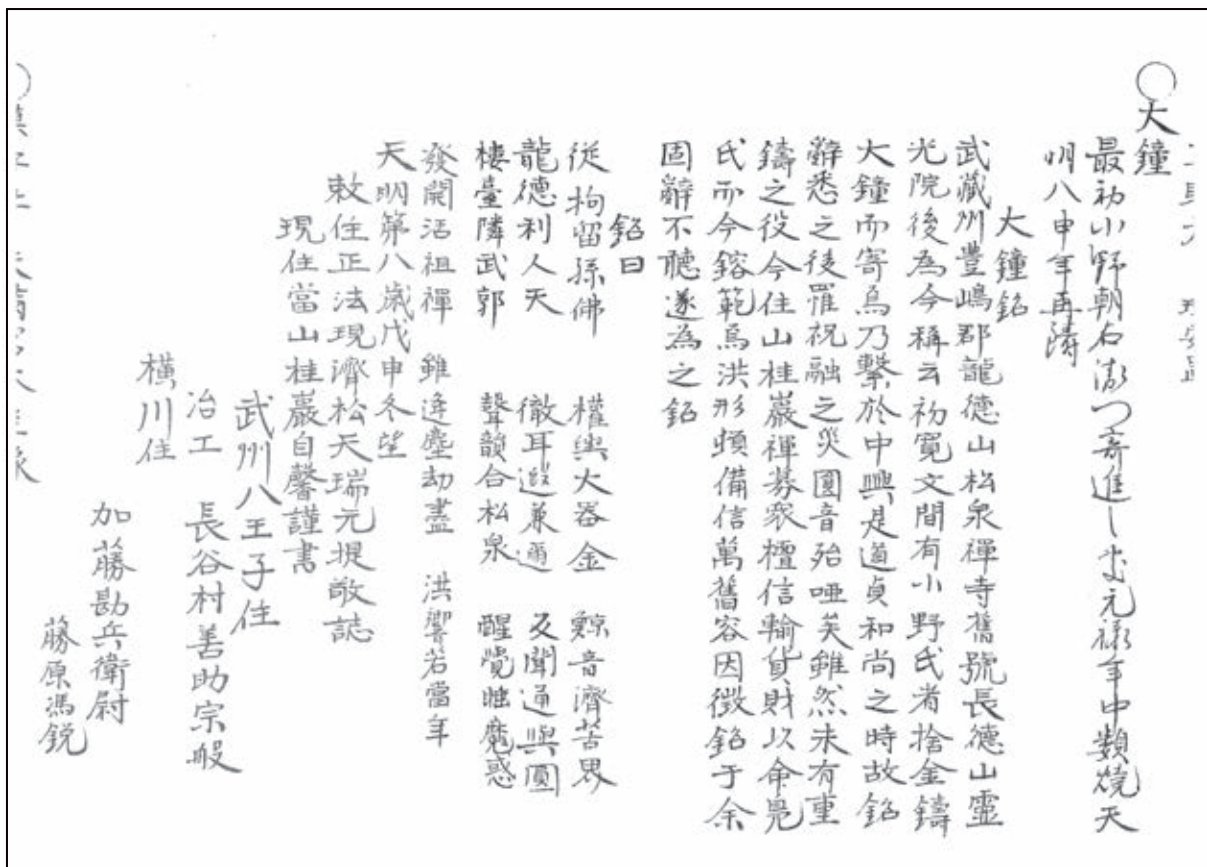 ○大鐘
最初小野朝右衛つ寄進し也元禄年中類焼天
明八申年再鋳
大鐘銘
武蔵州豊嶋郡龍徳山松泉禪寺舊號長德山靈
光院後為今稱云初寛文間有小野氏者捨金鑄
大鐘而寄焉乃繫於中興是道貞和尚之時故銘
辭悉之後罹祝融之災圓音殆啞矣雖然未有重
鑄之役今住山桂巖禪募眾檀信輸貨財以命鳧
氏而今鎔範焉洪形頓備信萬舊容因徴銘于余
固辭不聴遂為之銘
銘曰
從拘留孫佛 權輿大器金 鯨音濟苦界
龍德利人天 徹耳遐兼邇 反聞通與圓
樓臺隣武郭 聲韻合松泉 醒覺睡魔惑
發開活祖禪 雖逢塵劫盡 洪響若當年
天明第八歳戊申冬望
敕住正法現濟松天瑞元提敬誌
現住當山桂巖自馨謹書
武州八王子住
冶工 長谷村善助宗般
横川住
加藤勘兵衛尉
藤原馮鋭